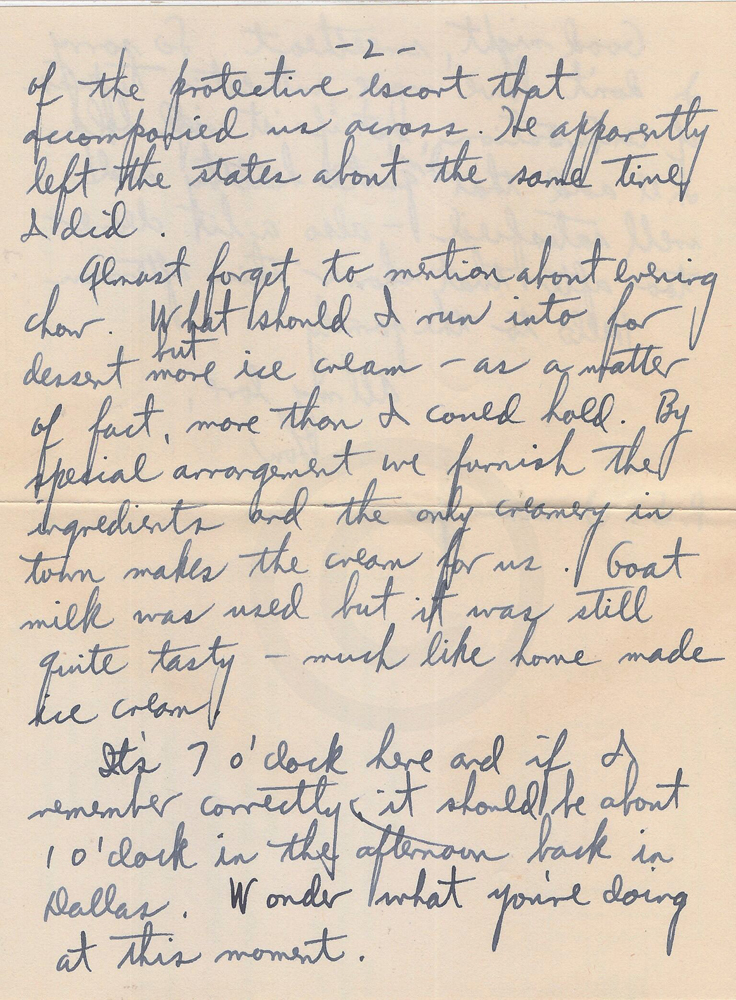 - 2 -
of the protective escort that
accompanied us across. He apparently
left the states about the same time
I did.
Almost forget to mention about evening
chow. What should I run into for
but
dessert more ice cream - as a matter
of fact, more than I could hold. By
special arrangement we furnish the
ingredients and the only creamery in
town makes the cream for us. Goat
milk was used but it was still
quite tasty - much like home made
ice cream.
It's 7 o'clock here and if I
remember correctly, it should be about
1 o'clock in the afternoon back in
Dallas. Wonder what you're doing
at this moment.